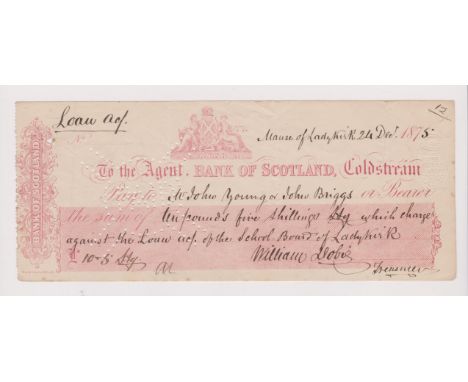 12
Loan a/c.
No.
Manse of Ladykirk 24 Decr. 1875
To the Agent, BANK OF SCOTLAND, Coldstream
Pay to Mr John Young or John Briggs or Bearer
the sum of Ten pounds five shillings Stg which charge
against the Loan a/c of the School Board of Ladykirk
£ 10-5 Stg William Dobie
Treasurer
BANK OF SCOTLAND